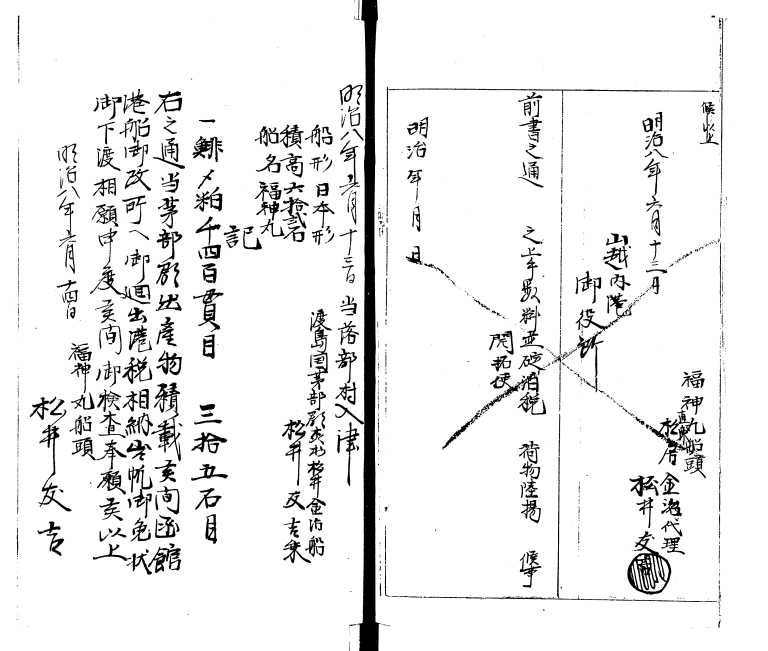 候也
明治八年六月十三日
山越内港
御役所
福神丸船頭
松居
直吉
金治代理
松井友
前書之通 之上手数料並碇泊税 荷物陸揚 候事
開拓使
明治 年 月 日
明治八年六月十三日 当落部村入津
渡島国茅部郡 松井金治船
松井友吉乗
船形日本形
積高六拾弐石
船名福神丸
記
一鯡〆粕千四百貫目 三拾五石目
右之通当茅部郡出産物積載候間函館
港船御改所へ御廻出港税相納出帆御免状
御下渡相願申度候間御検査奉願候以上
明治八年六月十四日
福神丸船頭
松井友吉